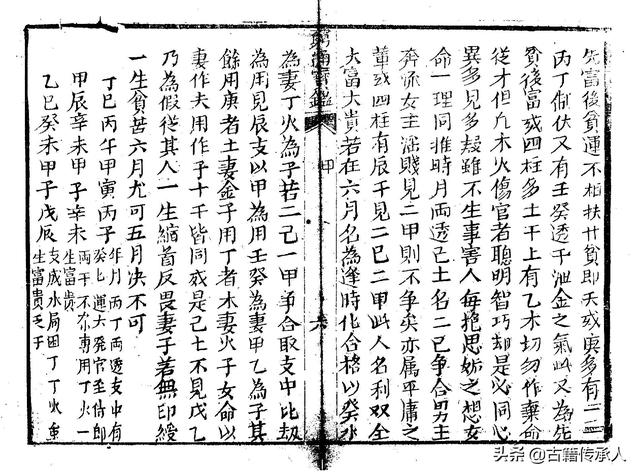 先富後貧運不相扶廿貧即夭或庚多有一二
丙丁制伏又有壬癸透干泄金之氣此又為先
貧後富或四柱多土干上有乙木切勿作棄命
從才但凡木火傷官者聰明智巧却是心同心
異多見多疑雖不生事害人每抱思妬之想女
命一理同推時月兩透己土名二己爭合男主
奔流女主淫賤見二甲則不爭矣亦屬平庸之
輩或四柱有辰干見二己二甲此人名利双全
大富大貴若在六月名為逢時化合格以癸水
窮通寶鑑
甲
六
為妻丁火為子若二己一甲爭合取支中比劫
為用見辰支以甲為用壬癸為妻甲乙為子其
餘用庚者土妻金子用丁者木妻火子女命以
妻作夫用作子十干皆同或是己土不見戊乙
乃為假從其人一生縮首反畏妻子若無印綬
一生貧苦六月尤可五月决不可
丁巳丙午甲寅丙子 年月丙丁兩透支中有癸七運大發官至侍郎
甲辰辛未甲子辛未 兩干不雜專用丁火一生富貴
乙巳癸未甲子戊辰 支成水局因丁丁火重生富貴乏子
头条 @古籍传承人